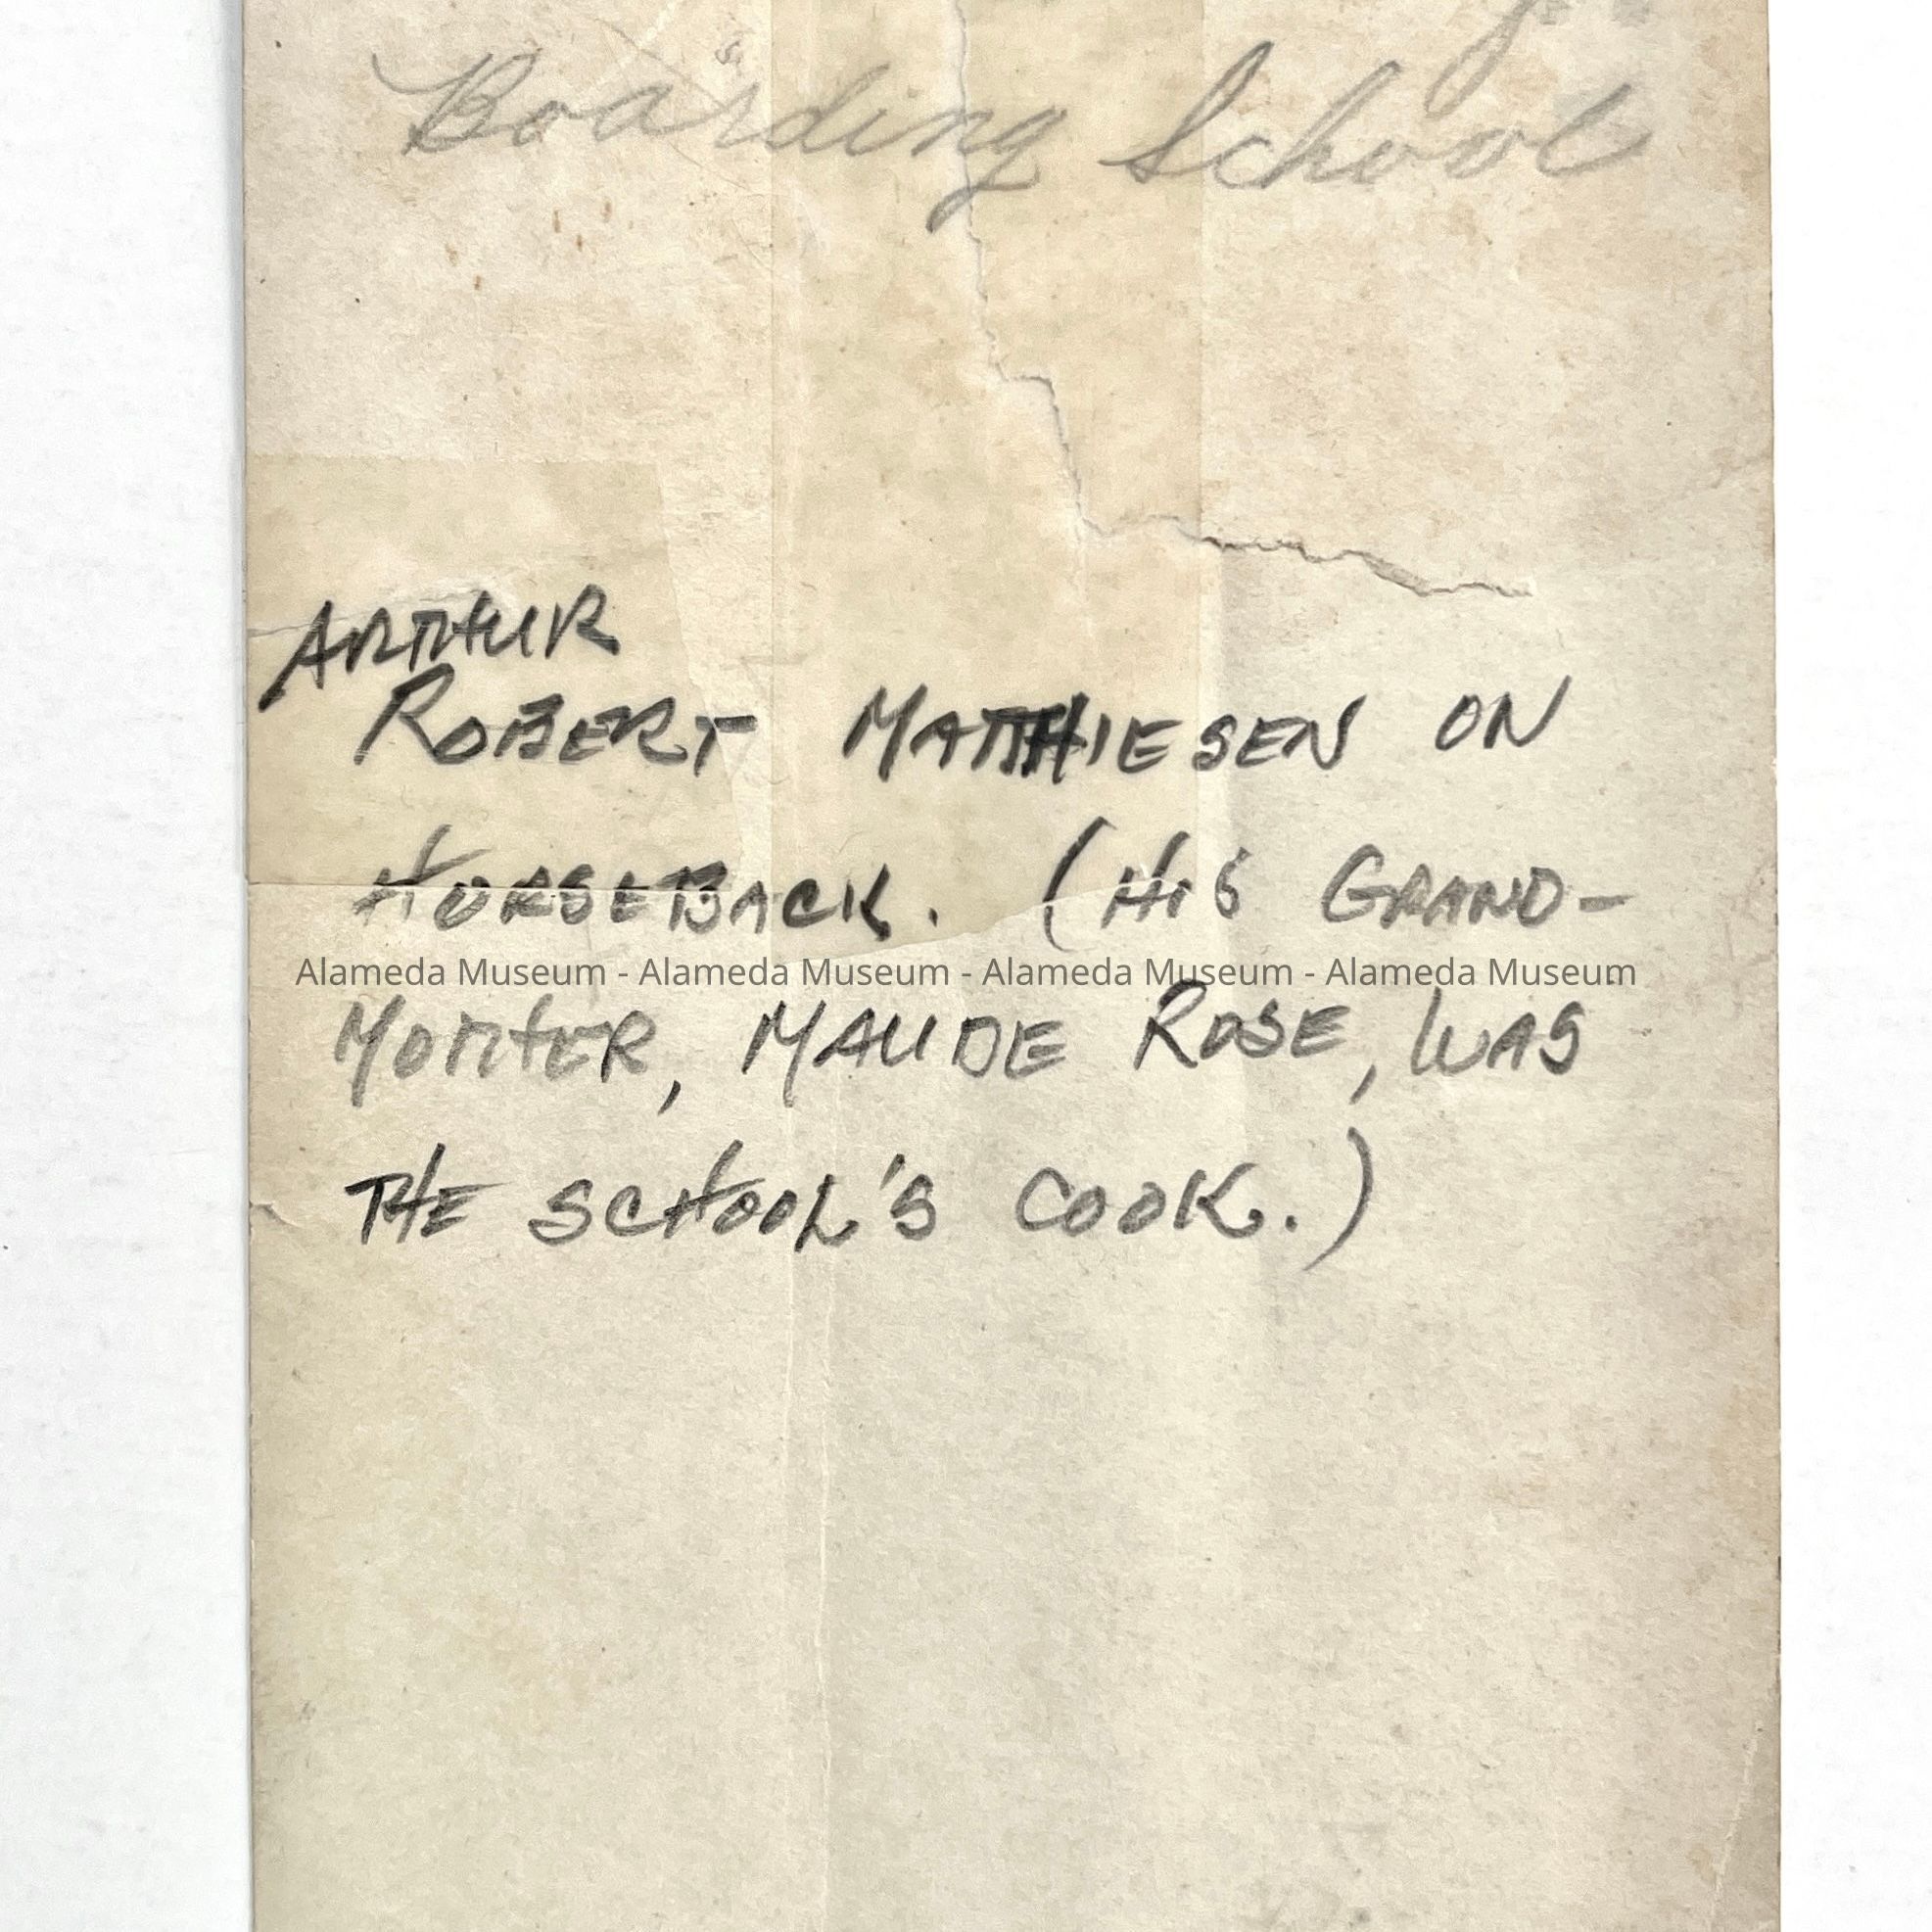 Boarding School
ARTHUR
ROBERT MATTHIESEN ON
HORSEBACK. (HIS GRAND-
Alameda Museum - Alameda Museum - Alameda Museum - Alameda Museum
MOTHER, MAUDE ROSE, WAS
THE SCHOOL'S COOK.)